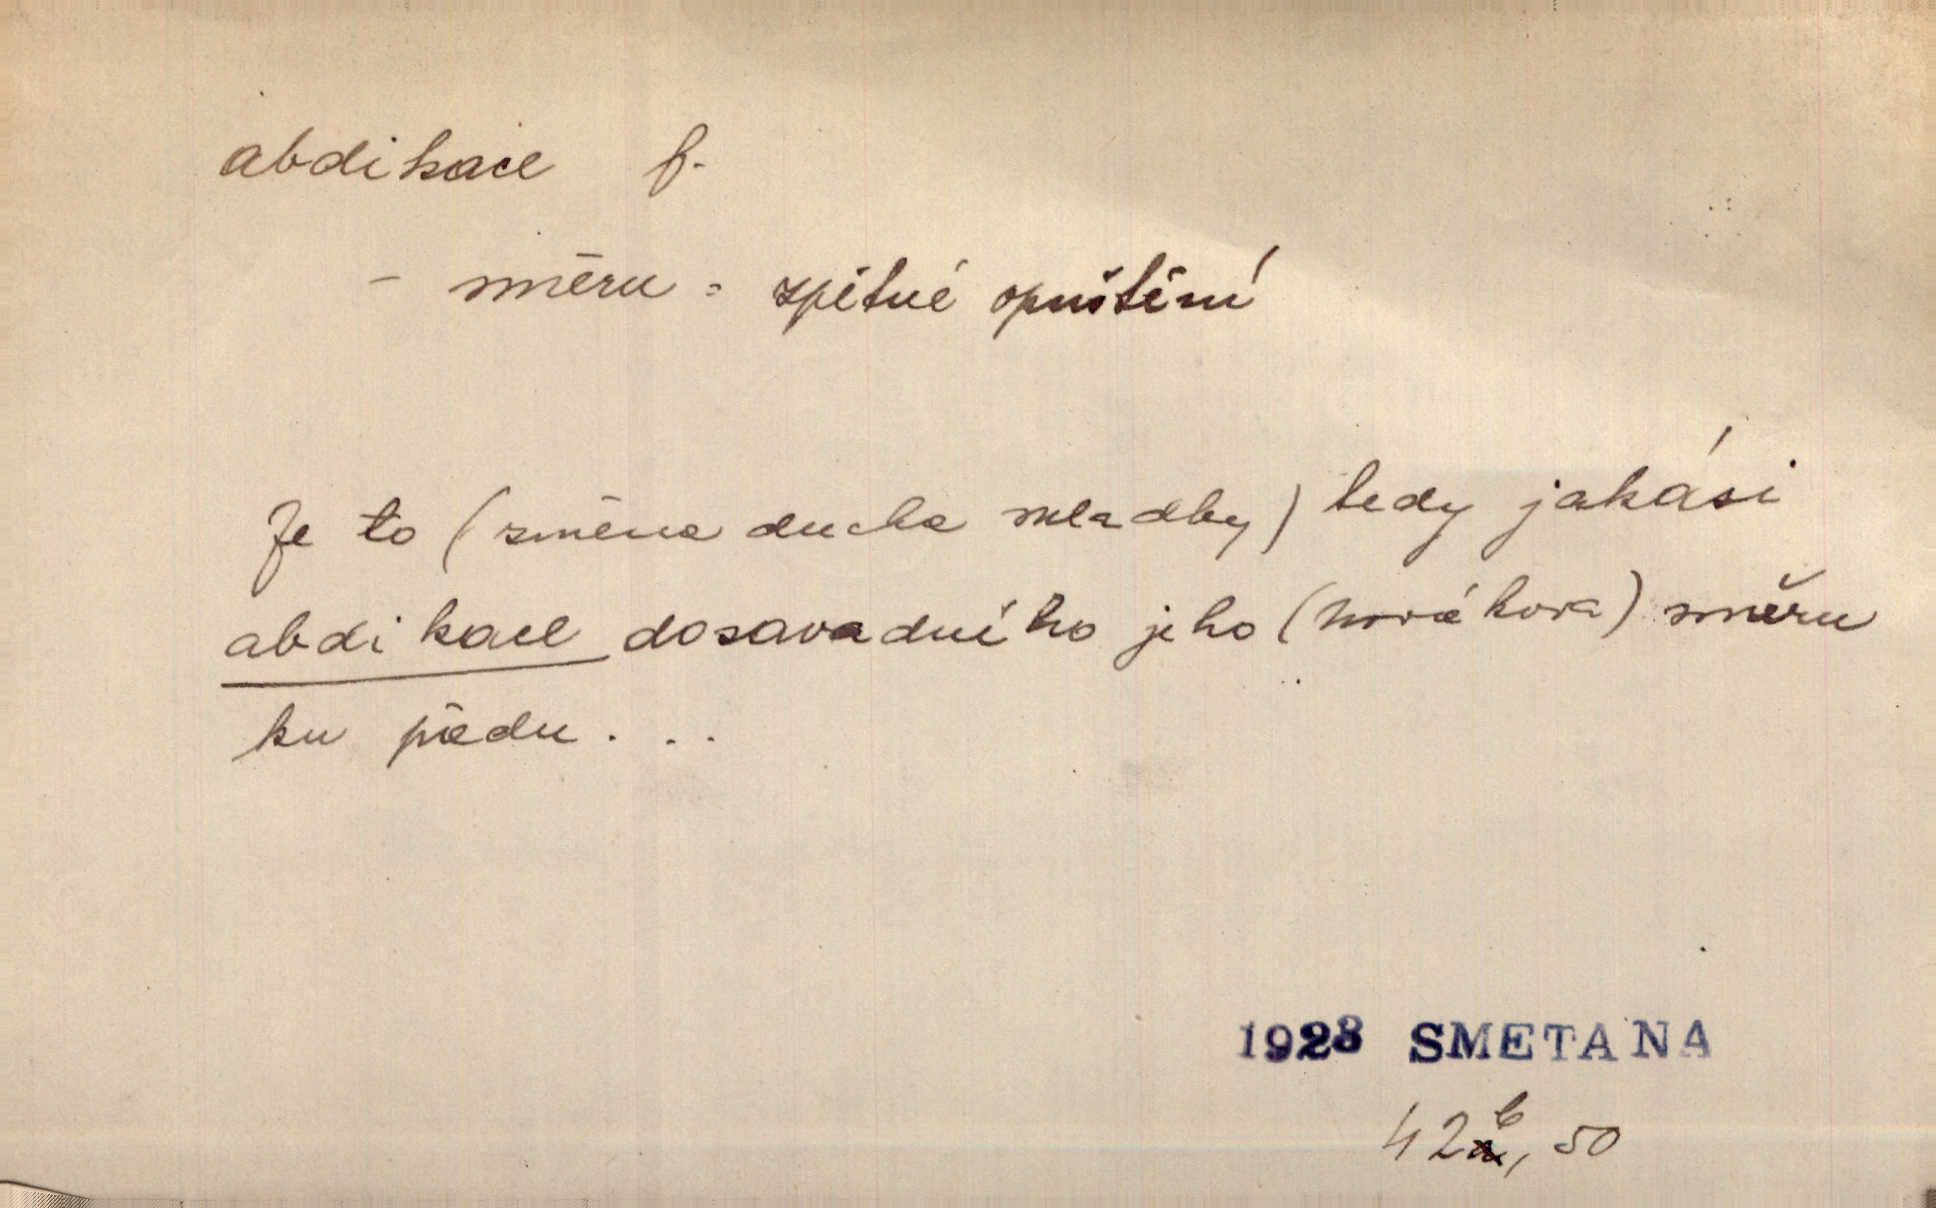 abdikace f.
- směru = zpětné opuštění
Je to (změna ducha skladby) tedy jakási
abdikace dosavadního jeho (Novákova) směru
ku předu...
1923 SMETANA
42b, 50